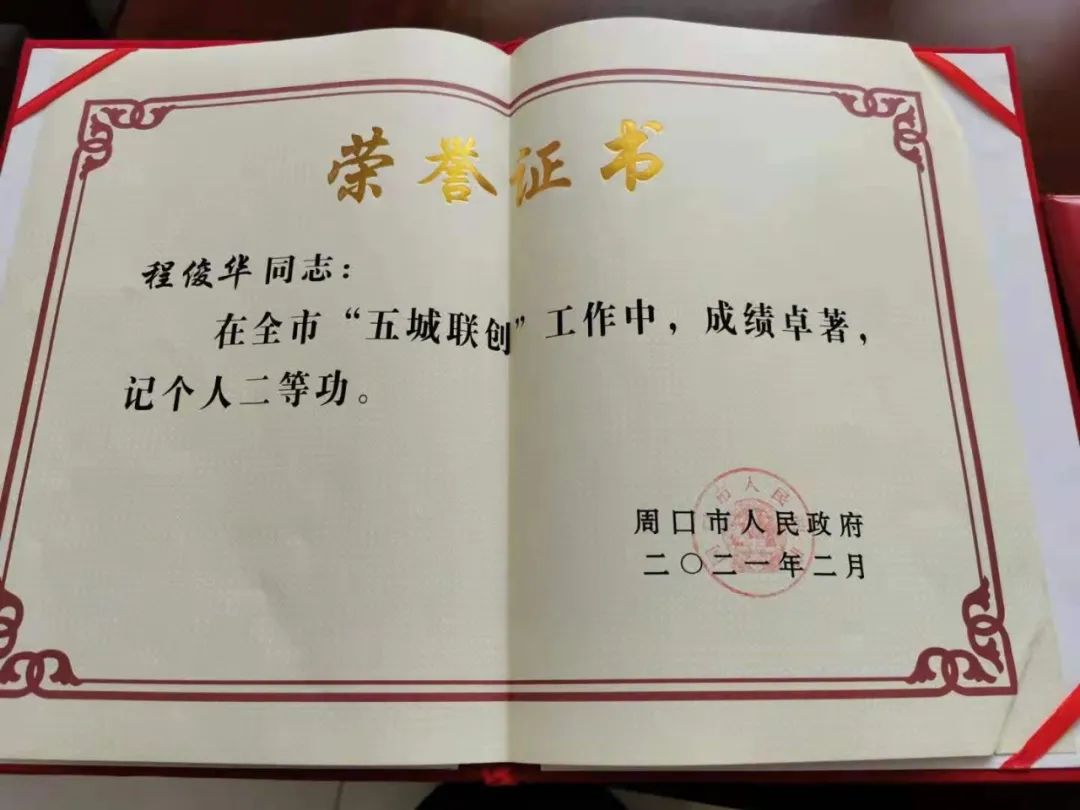 荣誉证书
程俊华同志：
在全市“五城联创”工作中，成绩卓著，
记个人二等功。
周口市人民政府
二〇二一年二月